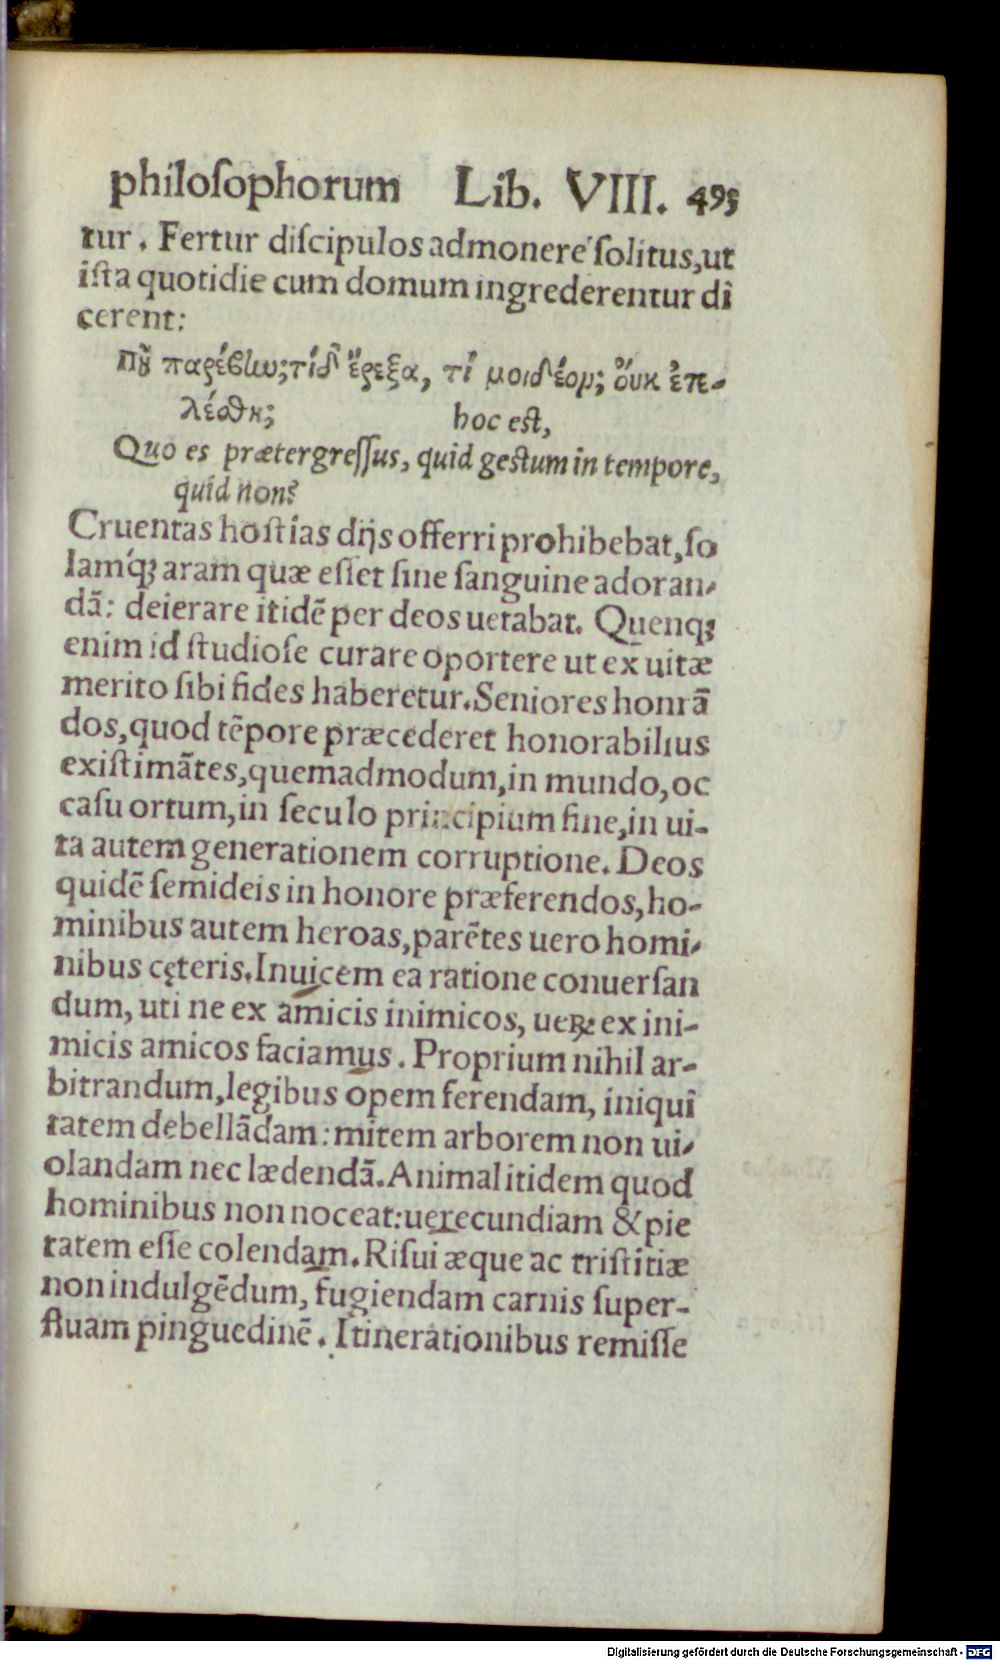 philoſophorum Lib. VIII. 495
tur. Fertur diſcipulos admonere ſolitus, ut
iſta quotidie cum domum ingrederentur di
cerent:
πȣ͂ παρέβlω; τί δ' ἔρεξα, τί μοι δέομ; ὄυκ ἐπε-
λέσθη; hoc eſt,
Quo es prætergreſſus, quid geſtum in tempore,
quid non?
Cruentas hoſtias dijs offerri prohibebat, ſo
lamq́; aram quæ eſſet ſine ſanguine adoran-
dā: deierare itidē per deos uetabat. Quenq;
enim id ſtudioſe curare oportere ut ex uitæ
merito ſibi fides haberetur. Seniores honrā
dos, quod tēpore præcederet honorabilius
exiſtimātes, quemadmodum, in mundo, oc
caſu ortum, in ſeculo principium fine, in ui-
ta autem generationem corruptione. Deos
quidē ſemideis in honore præferendos, ho-
minibus autem heroas, parētes uero homi-
nibus cęteris. Inuicem ea ratione conuerſan
dum, uti ne ex amicis inimicos, ueꝝ ex ini-
micis amicos faciamus. Proprium nihil ar-
bitrandum, legibus opem ferendam, iniqui
tatem debellādam: mitem arborem non ui-
olandam nec lædendā. Animal itidem quod
hominibus non noceat: uerecundiam & pie
tatem eſſe colendam. Riſui æque ac triſtitiæ
non indulgēdum, fugiendam carnis ſuper-
fluam pinguedinē. Itinerationibus remiſſe
Digitalisierung gefördert durch die Deutsche Forschungsgemeinschaft - DFG